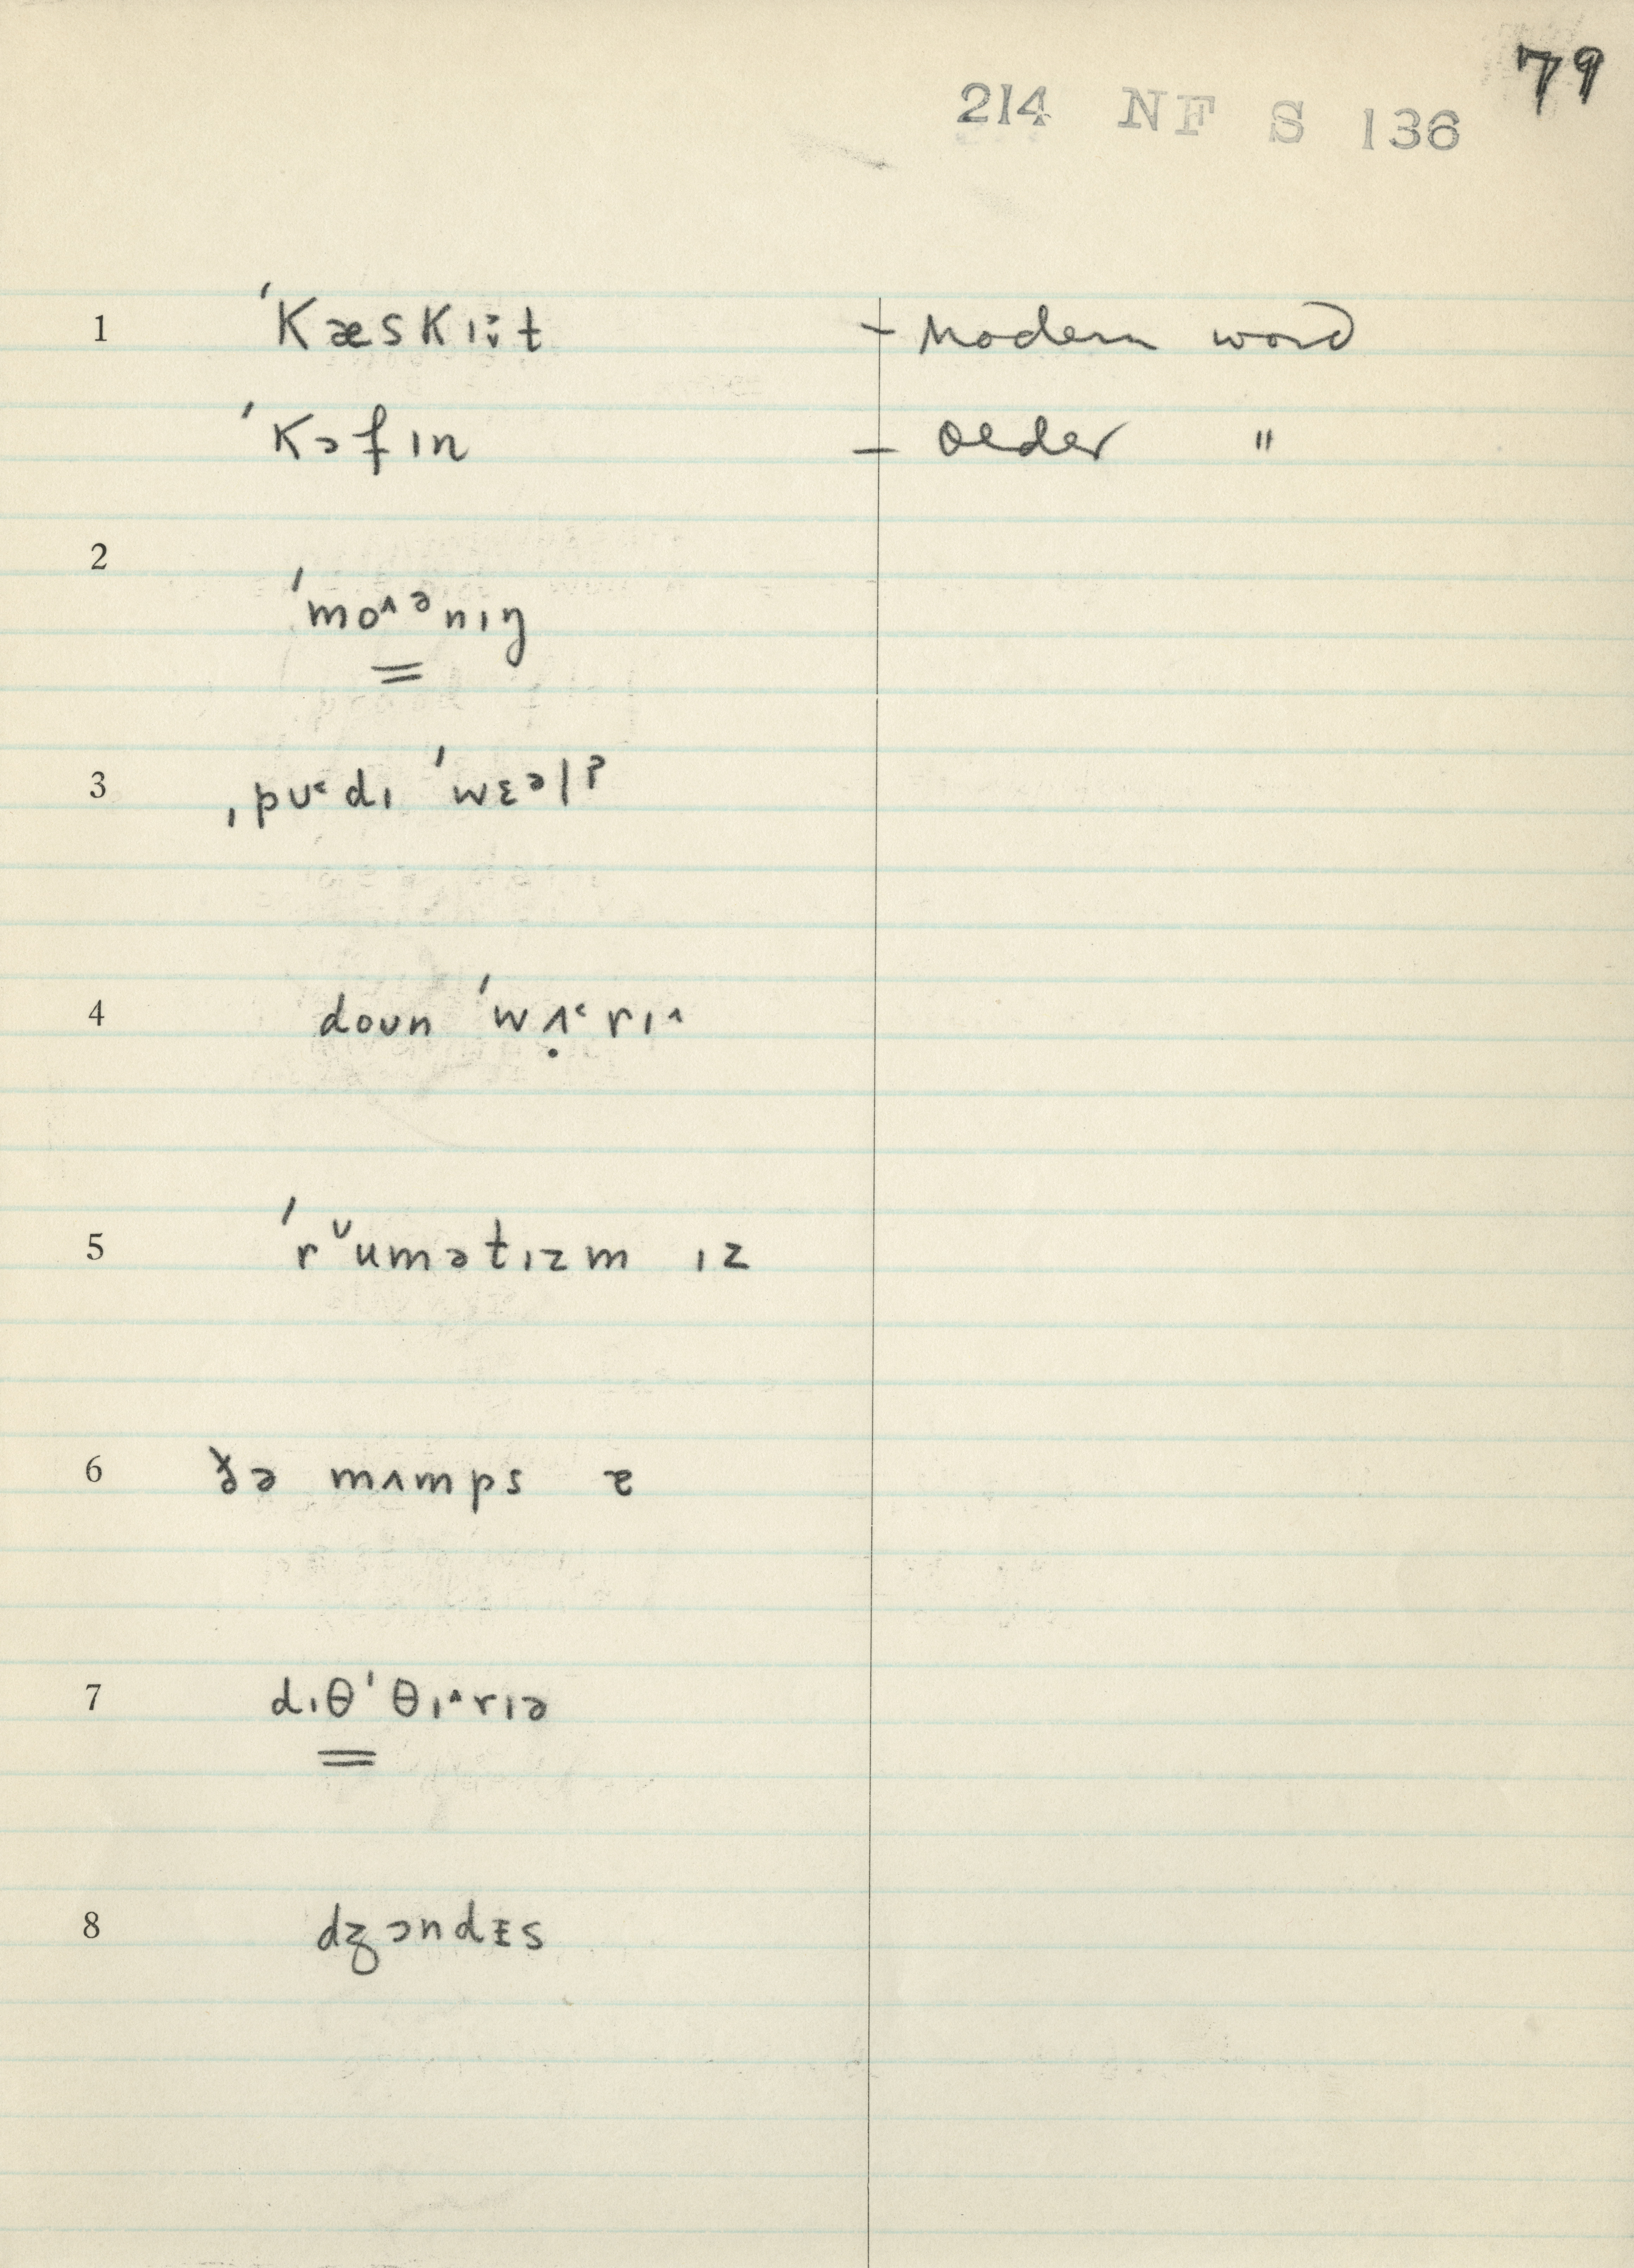 79
214 NF S 136
1 ˈkæskɪə̯t – Modern word
ˈkɔfɪn – Older "
2 ˈmo˄ᵊnɪŋ
3 ˌpʊ˂dɪ ˈwɛᵊlˀ
4 doʊn ˈwʌ̣˂rɪ˄
5 ˈrᵛumətɪzm ɪz
6 ðə mʌmps ɚ
7 dɪθˈθɪ˄rɪə
8 dʒɔndɪs